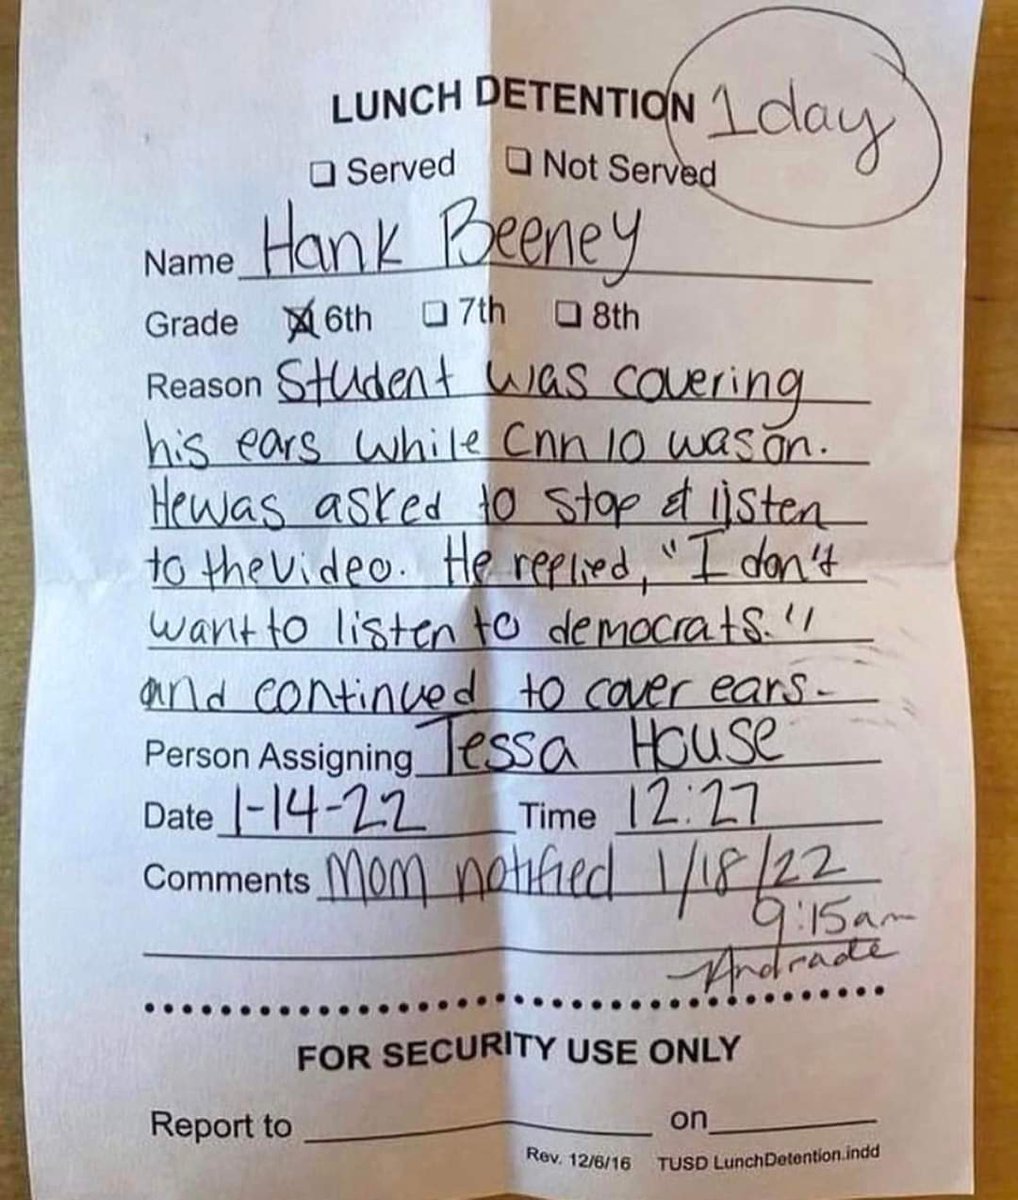 LUNCH DETENTION 1 day
❑ Served ❑ Not Served
Name Hank Beeney
Grade ☒ 6th ❑ 7th ❑ 8th
Reason Student was covering
his ears while Cnn 10 was on.
He was asked to stop & listen
to the video. He replied, "I don't
want to listen to democrats."
and continued to cover ears.
Person Assigning Tessa House
Date 1-14-22 Time 12:27
Comments Mom notified 1/18/22
9:15am
Andrade
FOR SECURITY USE ONLY
Report to on
Rev. 12/6/16 TUSD LunchDetention.indd